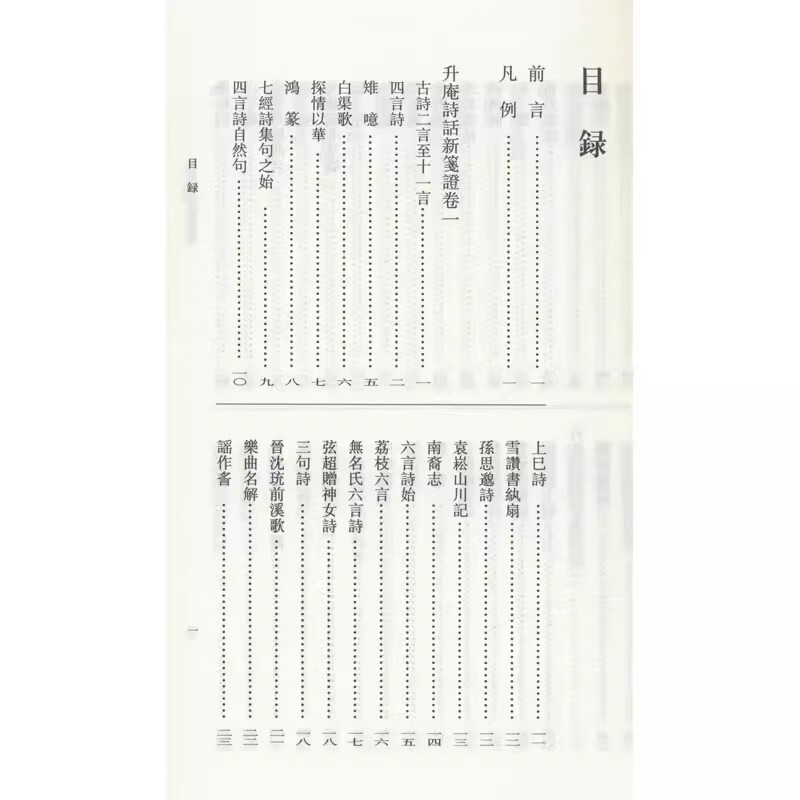 目録
前言……一
凡例……一
升庵詩話新箋證卷一
古詩二言至十一言……一
四言詩……二
雉噫……五
白渠歌……六
探情以華……七
鴻篆……八
七經詩集句之始……九
四言詩自然句……一〇
上巳詩……一一
雪讚書紈扇……一二
孫思邈詩……一二
袁崧山川記……一三
南裔志……一四
六言詩始……一五
荔枝六言……一六
無名氏六言詩……一七
弦超贈神女詩……一八
三句詩……一八
晉沈珫前溪歌……二一
樂曲名解……二二
謡作䚻……二三
目録
一